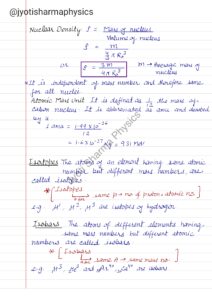 @jyotisharmaphysics
Nuclear Density ρ = Mass of nucleus
Volume of nucleus
ρ = m
4/3 π R₀³
or ρ = 3m
4πR₀³
m → Average mass of nucleus
It is independent of mass number and therefore same
for all nuclei
Atomic Mass Unit It is defined as 1/12 the mass of
carbon nucleus. It is abbreviated as amu and denoted
by u
1 amu = 1.99 x 10⁻²⁶
12
= 1.67 x 10⁻²⁷ = 931 MeV
Isotopes The atoms of an element having same atomic
number but different mass numbers are
called isotopes
* [Isotopes
→ same p → no of proton = atomic no]
e.g H¹, H², H³ are isotopes of hydrogen
Isobars The atoms of different elements having
same mass numbers but different atomic
numbers are called isobars
* [Isobars
→ same A → same mass no]
e.g H³, and are isobars
Jyoti Sharma Physics